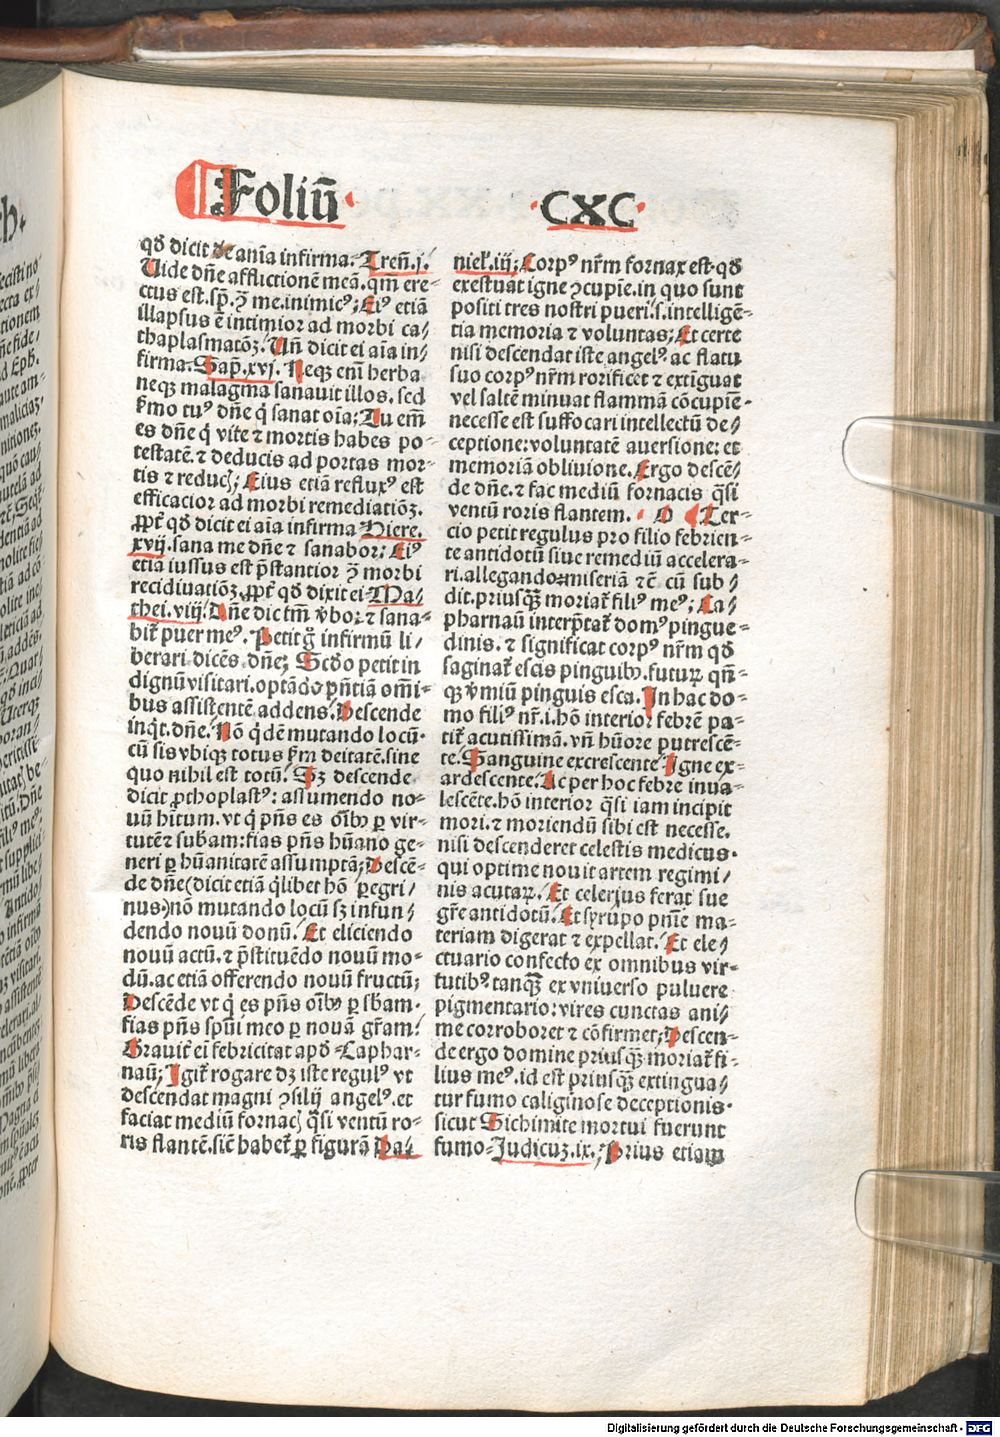 Foliū CXC
qđ dicit de aīa infirma. Treñ.j.
Uide dñe afflictionē meā. qm̄ ere-
ctus est. sp̄. ꝫ me. inimicꝰ; Eiꝰ etiā
illapsus ē intimior ad morbi ca/
thaplasmatōꝫ. Uñ dicit ei aīa in/
firma. Sap̄.xvj. Neqꝫ em̄ herba
neqꝫ malagma sanauit illos. sed
ẜmo tuꝰ dñe q̇ sanat oīa; Tu em̄
es dñe q̇ vite ⁊ mortis habes po-
testatē. ⁊ deducis ad portas mor-
tis ⁊ reduc̨; Eius etiā refluxꝰ est
efficacior ad morbi remediatiōꝫ.
ꝓpt̄ qđ dicit ei aīa infirma Hiere.
xvij. sana me dñe ⁊ sanabor; Eiꝰ
etiā iussus est p̄stantior ꝫ morbi
recidiuatiōꝫ. ꝓpt̄ qđ dixit ei Ma/
thei.viij. Dñe dic tm̄ v̄bo. ⁊ sana-
bit̄ puer meꝰ. Petit ḡ infirmū li/
berari. dicēs. dñe; Scd̄o petit in
dignū visitari. optādo p̄ntiā om̄i-
bus assistentē addens. Descende
inq̇t. dñe. Nō q̇dē mutando locū.
cū sis vbiqꝫ totus ẜm deitatē. sine
quo nihil est totū. Sꝫ descende
dicit ꝓthoplastꝰ: assumendo no-
uū hitum. vt q̇ p̄ns es oībꝰ ꝑ vir-
tutē ⁊ subam: fias p̄ns hūano ge-
neri ꝑ hūanitatē assumptā; Descē-
de dñe (dicit etiā q̇libet hō ꝑegri/
nus) nō mutando locū sꝫ infun/
dendo nouū donū. Et eliciendo
nouū actū. ⁊ p̄stituēdo nouū mo-
dū. ac etiā offerendo nouū fructū;
Descēde vt q̇ es p̄ns oībꝰ ꝑ sb̄am.
fias p̄ns sp̄ui meo ꝑ nouā gr̄am.
Grauit̄ ei febricitat apđ Caphar-
naū; Igit̄ rogare dꝫ iste regulꝰ vt
descendat magni ꝯsilij angelꝰ. et
faciat mediū fornac̨ q̇si ventū ro-
ris flantē. sic̄ habet̄ ꝑ figurā Da/
nieł.iij; Corpꝰ nr̄m fornax est. qđ
exestuat igne ꝯcupie. in quo sunt
positi tres nostri pueri. s. intelligē-
tia memoria ⁊ voluntas; Et certe
nisi descendat iste angelꝰ ac flatu
suo corpꝰ nr̄m rorificet ⁊ extīguat
vel saltē minuat flammā cōcupiē-
necesse est suffocari intellectū de/
ceptione: voluntatē auersione: et
memoriā obliuione. Ergo descē/
de dñe. ⁊ fac mediū fornacis q̇si
ventū roris flantem. D Ter-
cio petit regulus pro filio febrien-
te antidotū siue remediū accelera-
ri. allegando miseriā ⁊c̄ cū sub/
dit. priusq̄ꝫ moriat̄ filiꝰ meꝰ; Ca-
pharnaū interp̄tat̄ domꝰ pingue-
dinis. ⁊ significat corpꝰ nr̄m qđ
saginat̄ escis pinguibꝰ. futuꝝ qñ-
qꝫ v̄miū pinguis esca. In hac do-
mo filiꝰ nr̄. i. hō interior febrē pa-
tit̄ acutissimā. vñ hūore putrescē-
te. Sanguine excrescente Igne ex-
ardescente. Ac per hoc febre inua-
lescēte. hō interior q̇si iam incipit
mori. ⁊ moriendū sibi est necesse.
nisi descenderet celestis medicus.
qui optime nouit artem regimi/
nis acutaꝝ. Et celerius ferat sue
gr̄e antidotū. Et syrupo pn̄ie ma-
teriam digerat ⁊ expellat. Et ele/
ctuario confecto ex omnibus vir-
tutibꝰ tanq̄ꝫ ex vniuerso puluere
pigmentario: vires cunctas ani/
me corroboret ⁊ cōfirmet; Descen-
de ergo domine priusq̄ꝫ moriat̄ fi-
lius meꝰ. id est priusq̄ꝫ extingua/
tur fumo caliginose deceptionis.
sicut Sichimite mortui fuerunt
fumo. Judicuꝫ.ix.; Prius etiam
Digitalisierung gefördert durch die Deutsche Forschungsgemeinschaft - DFG